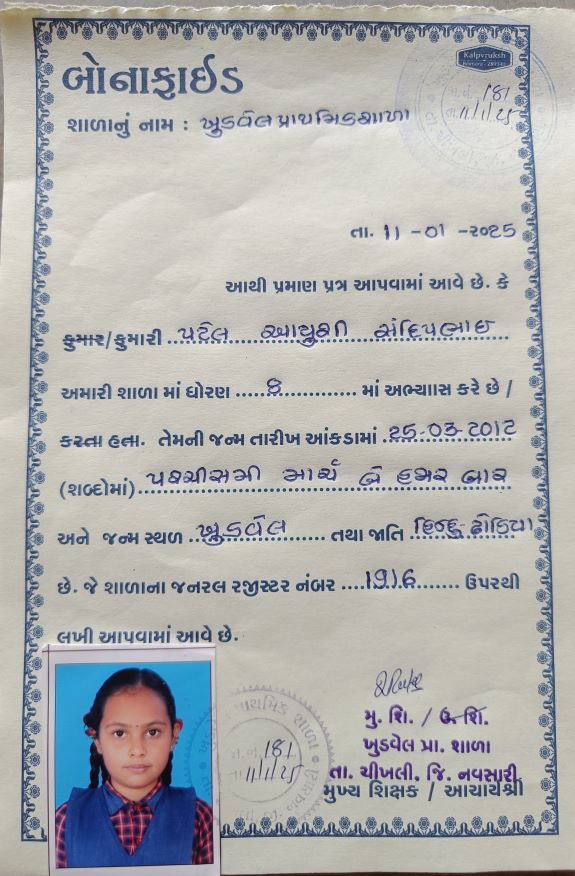 બોનાફાઈડ
Kalpvruksh
જા.નં. 181
તા. 11/1/25
શાળાનું નામ : ખુડવેલ પ્રાથમિક શાળા
તા. 11 -01 -૨૦25
આથી પ્રમાણ પત્ર આપવામાં આવે છે. કે
કુમાર/કુમારી પટેલ આયુશી સંદિપભાઇ
અમારી શાળા માં ધોરણ 8 માં અભ્યાસ કરે છે /
કરતા હતા. તેમની જન્મ તારીખ આંકડામાં 25-03-2012
(શબ્દોમાં) પચ્ચીસમી માર્ચ બે હજાર બાર
અને જન્મ સ્થળ ખુડવેલ તથા જાતિ હિન્દુ-ઢોડિયા
છે. જે શાળાના જનરલ રજીસ્ટર નંબર 1916 ઉપરથી
લખી આપવામાં આવે છે.
જા.નં. 181
તા 11/1/25
મુ. શિ. / ઉ. શિ.
ખુડવેલ પ્રા. શાળા
તા. ચીખલી, જિ. નવસારી
મુખ્ય શિક્ષક / આચાર્યશ્રી